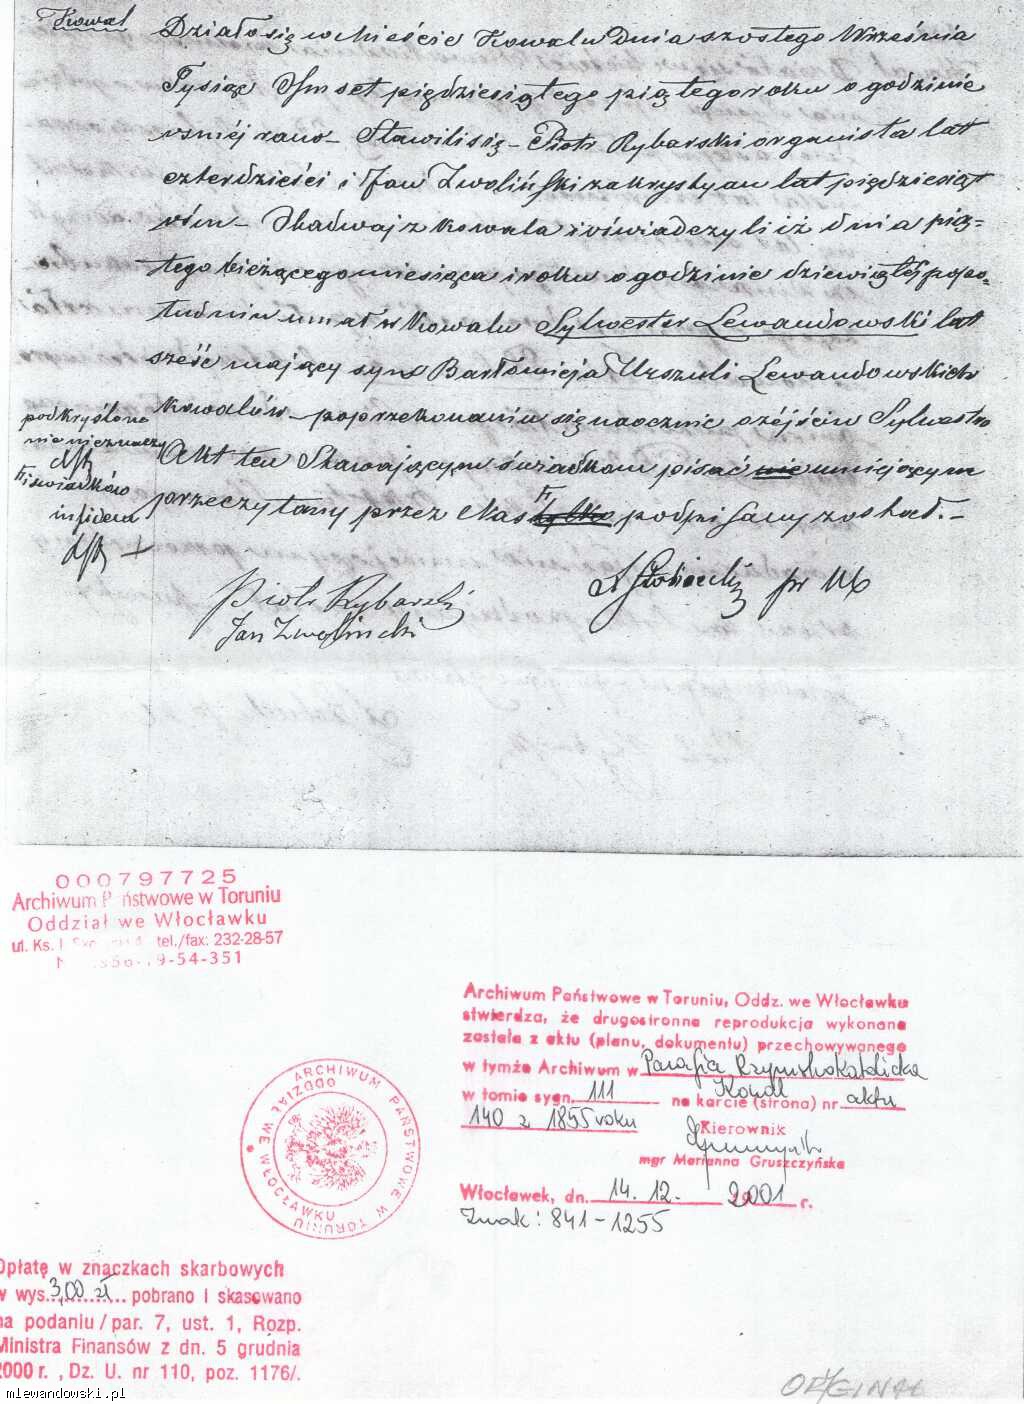 Kowal
Działo się w Mieście Kowalu Dnia szóstego Września
Tysiąc Ośmset pięćdziesiątego piątego roku o godzinie
ósméj rano – Stawili się – Piotr Rybarski organista lat
czterdzieści i Jan Zwoliński zakrystyan lat pięćdziesiąt
ośm – z Kowala i oświadczyli iż dnia pią=
tego bieżącego miesiąca i roku o godzinie dziewiątéj popo-
łudniu umarł w Kowalu Sylwester Lewandowski lat
sześć mający syn Bartłomieja Urszuli Lewandowskich
Kowalów – po przekonaniu się naocznie o zéjściu Sylwestra
Akt ten Stawającym świadkom pisać nie umiejącym
przeczytany przez Nas tylko podpisany został. –
podkryślone
nie nieznaczy
i świadków
Piotr Rybarski
Jan Zwoliński
000797725
Archiwum Państwowe w Toruniu
Oddział we Włocławku
ul. Ks. tel./fax: 232-28-57
9-54-351
Archiwum Państwowe w Toruniu, Oddz. we Włocławku
stwierdza, że drugostronna reprodukcja wykonana
została z aktu (planu, dokumentu) przechowywanego
w tymże Archiwum w Parafia Rzymskokatolicka
Kowal
w tomie sygn. 111 na karcie (strona) nr aktu
140 z 1855 roku
Kierownik
mgr Marianna Gruszczyńska
Włocławek, dn. 14.12. 2001 r.
Znak: 841-1255
ARCHIWUM PAŃSTWOWE W TORUNIU
ODDZIAŁ WE WŁOCŁAWKU
Opłatę w znaczkach skarbowych
w wys. 3,00 zł pobrano i skasowano
na podaniu/par. 7, ust. 1, Rozp.
Ministra Finansów z dn. 5 grudnia
2000 r., Dz. U. nr 110, poz. 1176/.
mlewandowski.pl
ORYGINAŁ